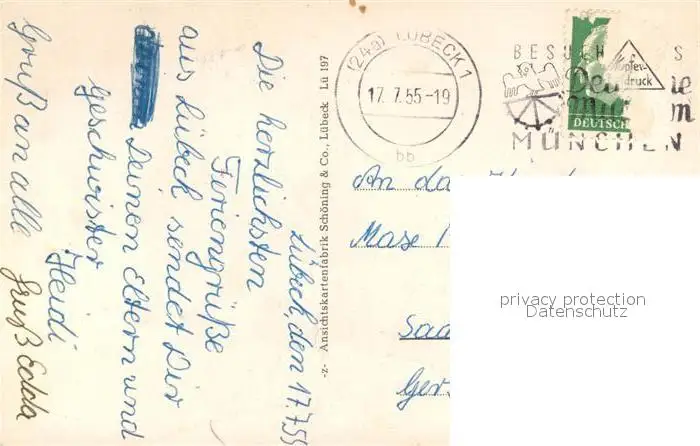 Lübeck, den 17.7.55
Die herzlichsten
Feriengrüße
aus Lübeck sendet Dir
Deinen Eltern und
Geschwister
Heidi
Gruß an alle
Gruß Edda
-z- Ansichtskartenfabrik Schöning & Co., Lübeck Lü 197
(24a) LÜBECK 1
17.7.55-19
bb
BESUCH S
MÜNCHEN
Kupfer-
druck
DEUTSCH
An da
Mase
Saa
Ger
privacy protection
Datenschutz